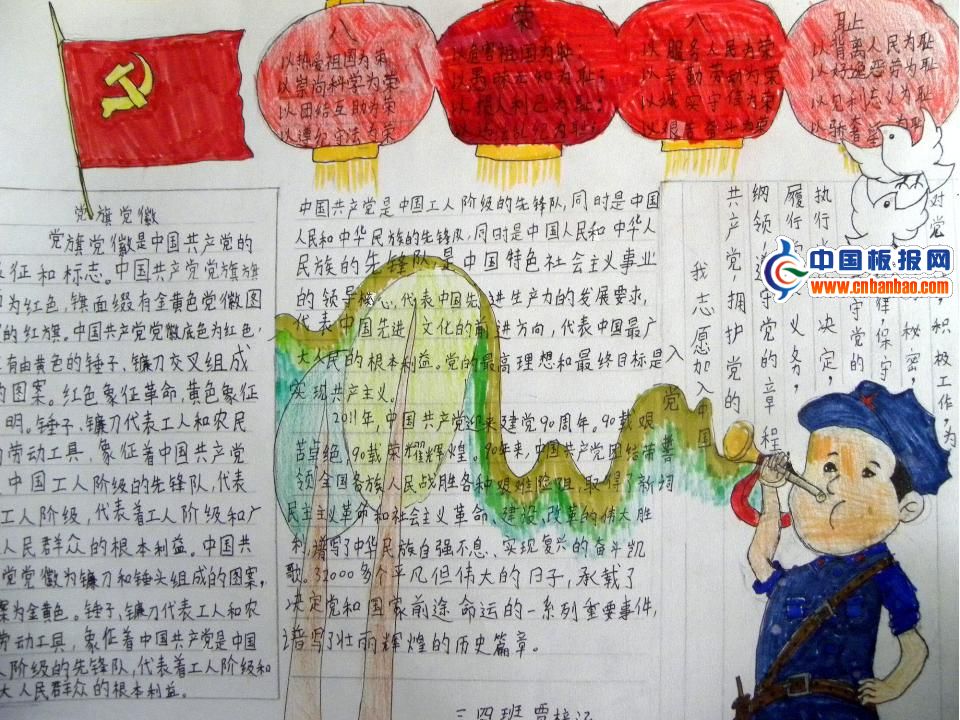 八
以热爱祖国为荣
以崇尚科学为荣
以团结互助为荣
以遵纪守法为荣
荣
以危害祖国为耻
以愚昧无知为耻;
以损人利己为耻;
以违法乱纪为耻;
八
以服务人民为荣
以辛勤劳动为荣
以诚实守信为荣
以艰苦奋斗为荣
耻
以背离人民为耻
以好逸恶劳为耻
以见利忘义为耻
以骄奢
党旗党徽
党旗党徽是中国共产党的
征和标志。中国共产党党旗旗
为红色,旗面缀有金黄色党徽图
的红旗。中国共产党党徽底色为红色,
有由黄色的锤子、镰刀交叉组成
的图案。红色象征革命,黄色象征
明。锤子、镰刀代表工人和农民
劳动工具,象征着中国共产党
中国工人阶级的先锋队,代表
工人阶级,代表着工人阶级和广
人民群众的根本利益。中国共
党党徽为镰刀和锤头组成的图案,
案为金黄色。锤子、镰刀代表工人和农
劳动工具,象征着中国共产党是中国
人阶级的先锋队,代表着工人阶级和
大人民群众的根本利益。
中国共产党是中国工人阶级的先锋队,同时是中国
人民和中华民族的先锋队,同时是中国人民和中华人
民族的先锋队,是中国特色社会主义事业
的领导核心,代表中国先进生产力的发展要求,
代表中国先进文化的前进方向,代表中国最广
大人民的根本利益。党的最高理想和最终目标是
实现共产主义。
2011年,中国共产党迎来建党90周年。90载艰
苦卓绝,90载荣耀辉煌。90年来,中国共产党团结带
领全国各族人民战胜各种艰难险阻,取得了新
民主主义革命和社会主义革命、建设、改革的伟大胜
利,谱写了中华民族自强不息、实现复兴的奋斗凯
歌。32000多个平凡但伟大的日子,承载了
决定党和国家前途命运的一系列重要事件,
谱写了壮丽辉煌的历史篇章。
入党
我志愿加入中国
共产党,拥护党的
纲领,遵守党的章程
履行义务,
执行决定,
守党的秘密,
律保守
对党积极工作,为
中国板报网
www.cnbanbao.com
三四班